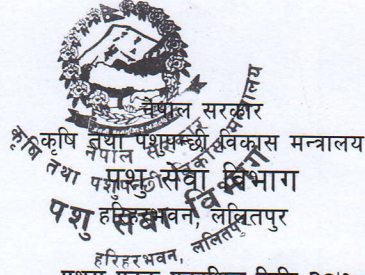 नेपाल सरकार
कृषि तथा पशुपन्छी विकास मन्त्रालय
पशु सेवा विभाग
हरिहरभवन, ललितपुर
नेपाल सरकार
कृषि तथा पशुपन्छी विकास मन्त्रालय
पशु सेवा विभाग
हरिहरभवन, ललितपुर